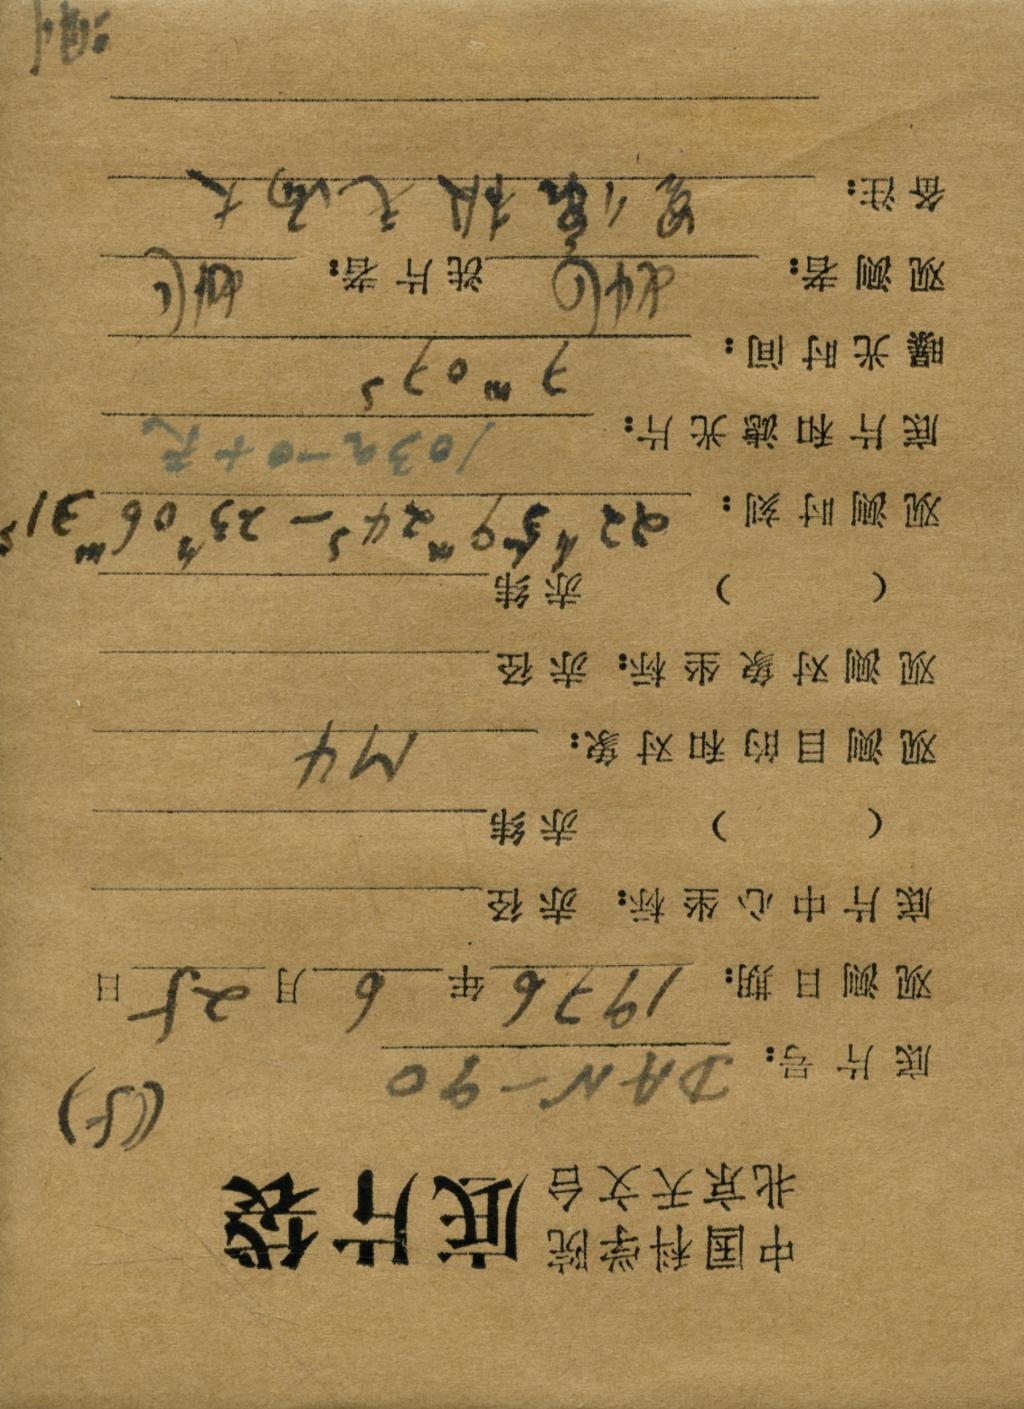 中国科学院
北京天文台
底片袋
(5)
底片号: DAN-90
观测日期: 1976年6月25日
底片中心坐标: 赤径
( ) 赤纬
观测目的和对象: M4
观测对象坐标: 赤径
( ) 赤纬
观测时刻: 22h59m24s-23h06m31s
底片和滤光片: 103a-O+无
曝光时间: 7m07s
观测者: 洗片者:
备注: